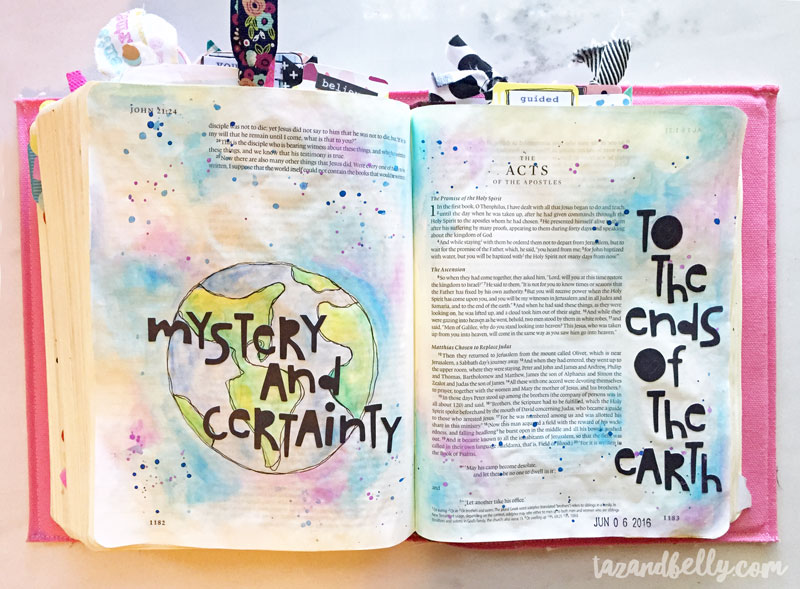 you
believe
guided
JOHN 21:24
disciple was not to die; yet Jesus did not say to him that he was not to die, but, "If it is
my will that he remain until I come, what is that to you?"
24This is the disciple who is bearing witness about these things, and who
these things, and we know that his testimony is true.
25Now there are also many other things that Jesus did. Were every one of
written, I suppose that the world itself could not contain the books that would
mystery
and
certainty
1182
THE
ACTS
OF THE APOSTLES
The Promise of the Holy Spirit
1 In the first book, O Theophilus, I have dealt with all that Jesus began to do and teach,
until the day when he was taken up, after he had given commands through the
Holy Spirit to the apostles whom he had chosen. 3He presented himself alive
after his suffering by many proofs, appearing to them during forty days and speaking
about the kingdom of God.
4And while staying with them he ordered them not to depart from Jerusalem, but to
wait for the promise of the Father, which, he said, "you heard from me; 5for John baptized
with water, but you will be baptized with the Holy Spirit not many days from now."
The Ascension
6So when they had come together, they asked him, "Lord, will you at this time restore
the kingdom to Israel?" 7He said to them, "It is not for you to know times or seasons that
the Father has fixed by his own authority. 8But you will receive power when the Holy
Spirit has come upon you, and you will be my witnesses in Jerusalem and in all Judea and
Samaria, and to the end of the earth." 9And when he had said these things, as they were
looking on, he was lifted up, and a cloud took him out of their sight. 10And while they
were gazing into heaven as he went, behold, two men stood by them in white robes, 11and
said, "Men of Galilee, why do you stand looking into heaven? This Jesus, who was taken
up from you into heaven, will come in the same way as you saw him go into heaven."
Matthias Chosen to Replace Judas
12Then they returned to Jerusalem from the mount called Olivet, which is near
Jerusalem, a Sabbath day's journey away. 13And when they had entered, they went up to
the upper room, where they were staying, Peter and John and James and Andrew, Philip
and Thomas, Bartholomew and Matthew, James the son of Alphaeus and Simon the
Zealot and Judas the son of James. 14All these with one accord were devoting themselves
to prayer, together with the women and Mary the mother of Jesus, and his brothers.
15In those days Peter stood up among the brothers (the company of persons was in
all about 120) and said, 16"Brothers, the Scripture had to be fulfilled, which the Holy
Spirit spoke beforehand by the mouth of David concerning Judas, who became a guide
to those who arrested Jesus. 17For he was numbered among us and was allotted his
share in this ministry." 18(Now this man acquired a field with the reward of his wick-
edness, and falling headlong he burst open in the middle and all his bowels gushed
out. 19And it became known to all the inhabitants of Jerusalem, so that the field was
called in their own language Akeldama, that is, Field of Blood.) 20"For it is written in
the Book of Psalms,
"'May his camp become desolate,
and let there be no one to dwell in it';
and
"'Let another take his office.'
TO
The
ends
OF
The
EARTH
JUN 06 2016
1183
tazandbelly.com